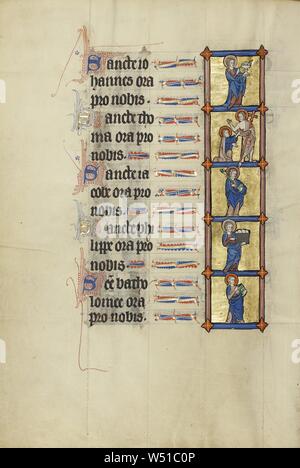 Sancte io
hannes ora
pro nobis.
Sancte tho
ma ora pro
nobis.
Sancte ia
cobe ora pro
nobis.
Sancte phi
lippe ora pro
nobis.
Sce bartho
lomee ora
pro nobis.
alamy
www.alamy.com
W51C0P